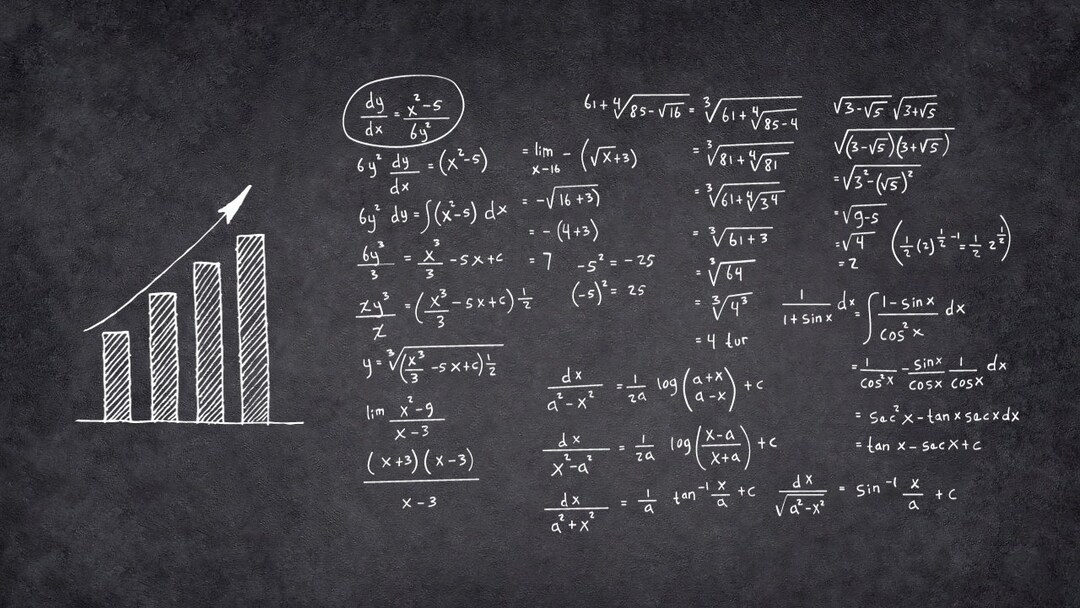 dy/dx = x²-5/6y²
6y² dy/dx = (x²-5)
6y² dy = ∫(x²-5) dx
6y³/3 = x³/3 -5x+c
zy³/z = (x³/3 -5x+c)½
y = ³√((x³/3 -5x+c)½)
lim x²-9/x-3
(x+3)(x-3)/x-3
= lim x-16 - (√x+3)
= -√(16+3)
= -(4+3)
= 7
-5² = -25
(-5)² = 25
61+⁴√(85-√16) = ³√(61+⁴√(85-4))
= ³√(81+⁴√81)
= ³√(61+⁴√3⁴)
= ³√(61+3)
= ³√64
= ³√4³
= 4 tur
√(3-√5) √(3+√5)
√((3-√5)(3+√5))
=√(3²-(√5)²)
=√(9-5)
=√4
=2
(½(2)^½⁻¹=½ 2^½)
1/1+sinx dx = ∫ 1-sinx/cos²x dx
= 1/cos²x - sinx/cosx 1/cosx dx
= sec²x-tanxsecxdx
= tan x - secx+c
dx/a²-x² = 1/2a log(a+x/a-x) +c
dx/x²-a² = 1/2a log(x-a/x+a) +c
dx/a²+x² = 1/a tan⁻¹ x/a +c
dx/√(a²-x²) = sin⁻¹ x/a +c